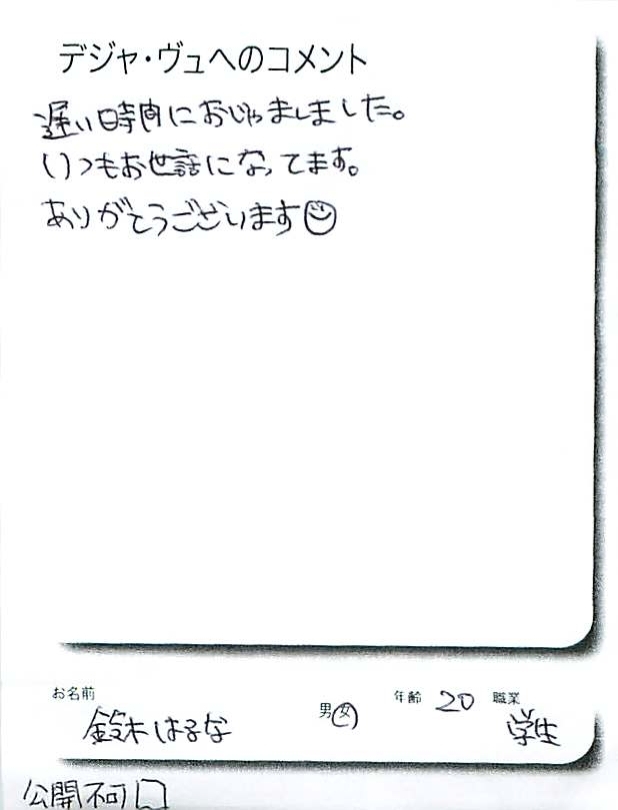 デジャ・ヴュへのコメント
遅い時間におじゃましました。
いつもお世話になってます。
ありがとうございます
お名前 鈴木はるな 男 女 年齢 20 職業 学生
公開不可